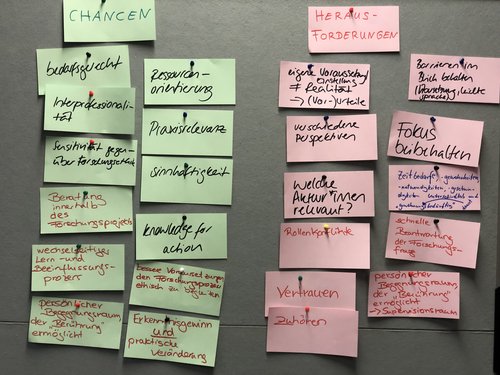 CHANCEN
bedarfsgerecht
Interprofessionali-
tät
Sensitivität gegen-
über Forschungsethik
Beratung
innerhalb
des
Forschungsprojekts
wechselseitige
Lern- und
Beeinflussungs-
prozess
persönlicher
Begegnungsraum,
der "Berührung"
ermöglicht
Ressourcen-
orientierung
Praxisrelevanz
Sinnhaftigkeit
Knowledge for
action
bessere Voraussetzungen
den Forschungsprozess
ethisch zu begleiten
Erkenntnisgewinn
und
praktische
Veränderung
HERAUS-
FORDERUNGEN
eigene Voraussetzung
Einstellung
≠ Realität
→ (Vor-)Urteile
verschiedene
Perspektiven
welche
Akteur*innen
relevant?
Rollenkonflikte
Vertrauen
Zuhören
Barrieren im
Blick behalten
(Übersetzung, leichte
Sprache)
Fokus
beibehalten
Zeitbedarfe
schnelle
Beantwortung
der Forschungs-
frage
persönlicher
Begegnungsraum,
der "Berührung"
ermöglicht
→ Supervisionsraum